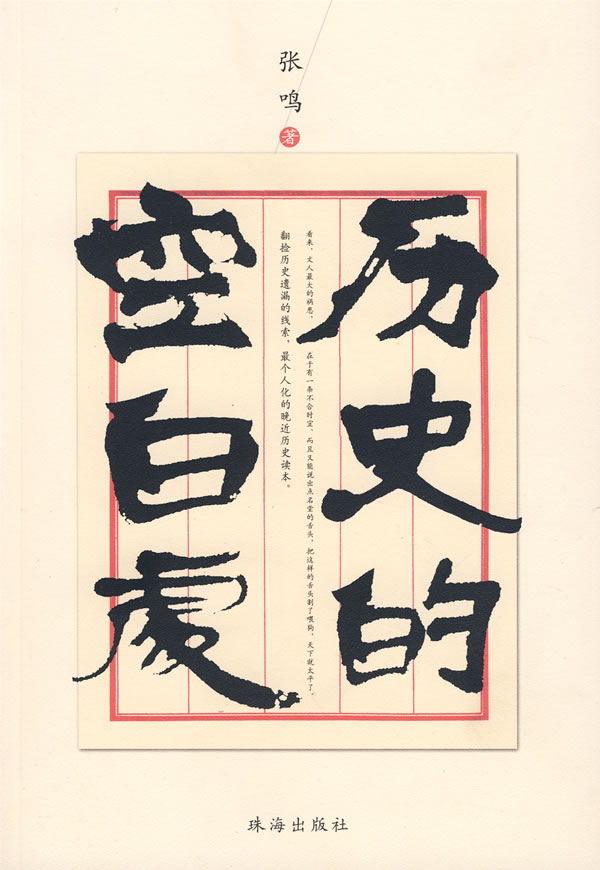 张鸣
著
历史的
空白處
看来，文人最大的祸患，在于有一条不合时宜、而且又能说出点名堂的舌头，把这样的舌头割了喂狗，天下就太平了。
翻捡历史遗漏的线索，最个人化的晚近历史读本。
珠海出版社